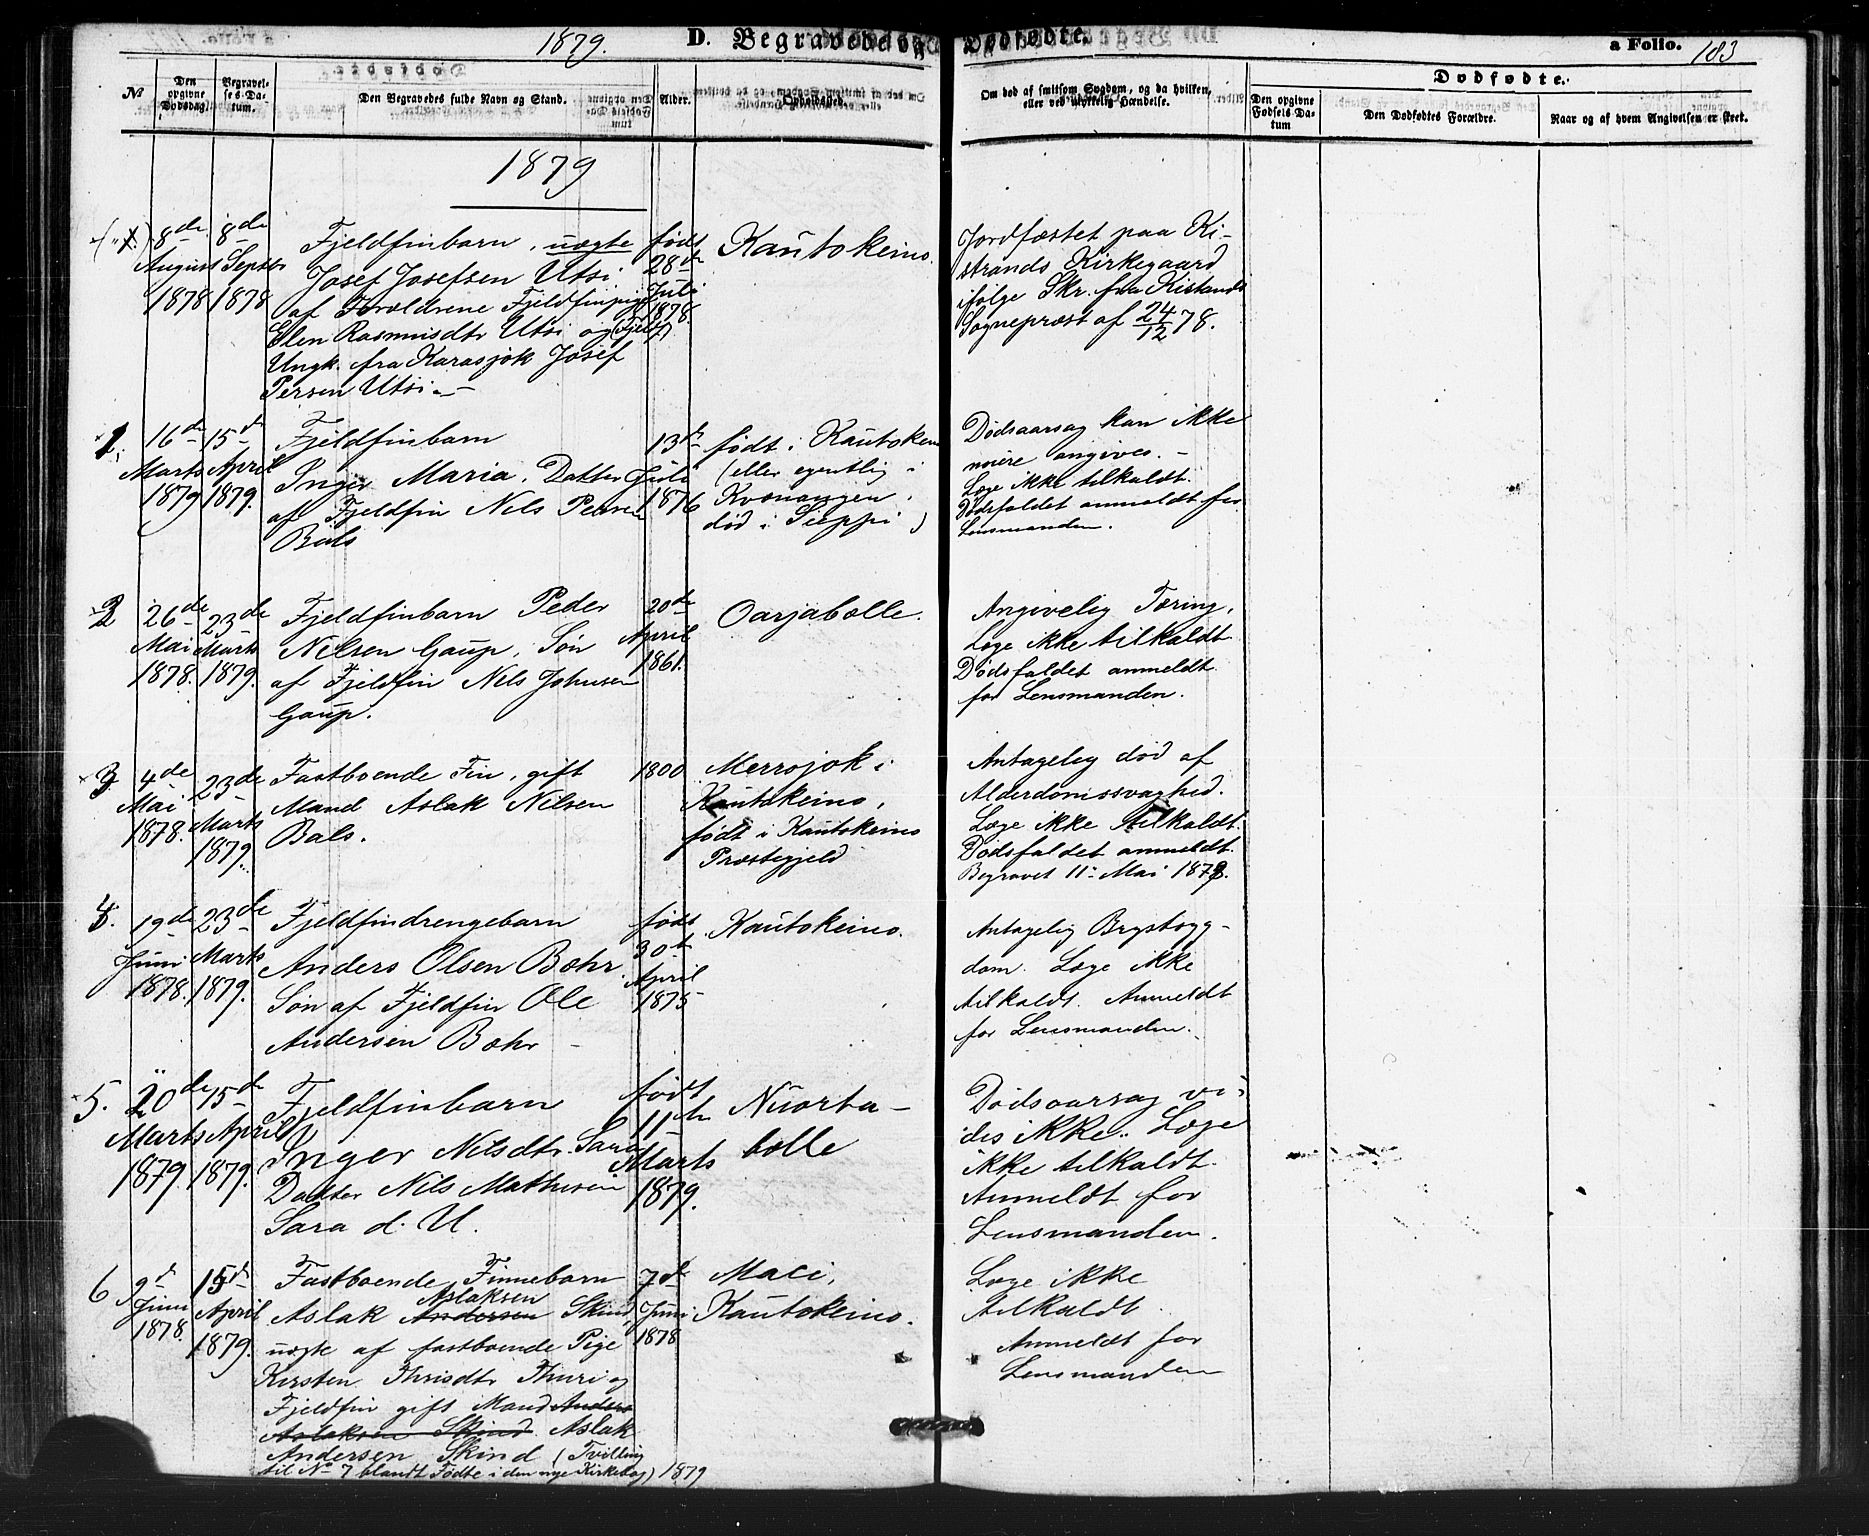 1879.
D. Begravede og Dødfødte.
a Folio. 183
№
Den opgivne Dødsdag.
Begravelses-Datum.
Den Begravedes fulde Navn og Stand.
Alder.
Opholdssted.
Om død af smitsom Sygdom, og da hvilken, eller ved ulykkelig Hændelse.
Dødfødte.
Den opgivne Fødsels-Datum
Den Dødfødtes Forældre.
Naar og af hvem Angivelsen er skeet.
1879
8de
August
1878
8de
Septbr
1878
Fjeldfinbarn, uægte
Josef Josefsen Utsi
af Forældrene Fjeldfinpige
Elen Rasmusdtr Utsi og (Fjeldf)
Ungk. fra Karasjok Josef
Persen Utsi.
født
28de
Juli
1878.
Kautokeino.
Jordfæstet paa Ki-
strands Kirkegaard
ifølge Skr. fra Kistrands
Sognepræst af 24/12 78.
1.
16de
Marts
1879
15de
April
1879.
Fjeldfinbarn
Inger Maria, Datter
af Fjeldfin Nils Persen
Bals
13de
Juli
1876
født i Kautokeino
(eller egentlig i
Kvænangen,
død i Sieppi)
Dødsaarsag kan ikke
nøiere angives. -
Læge ikke tilkaldt.
Dødsfaldet anmeldt for
Lensmanden.
2
26de
Mai
1878.
23de
Marts
1879.
Fjeldfinbarn Peder
Nilsen Gaup, Søn
af Fjeldfin Nils Johnsen
Gaup.
20de
April
1861.
Oarjabælle.
Angivelig Tæring,
Læge ikke tilkaldt
Dødsfaldet anmeldt
for Lensmanden.
3
4de
Mai
1878.
23de
Marts
1879.
Fastboende Fin, gift
Mand Aslak Nilsen
Bals.
1800
Merrojok i
Kautokeino,
født i Kautokeino
Præstegjeld
Antagelig død af
Alderdomssvaghed.
Læge ikke tilkaldt.
Dødsfaldet anmeldt.
Begravet 11te Mai 1878.
4.
19de
Juni
1878.
23de
Marts
1879.
Fjeldfindrengebarn
Anders Olsen Bæhr.
Søn af Fjeldfin Ole
Andersen Bæhr -
født
30te
April
1875
Kautokeino.
Antagelig Brystsyg-
dom. Læge ikke
tilkaldt. Anmeldt
for Lensmanden.
5.
20de
Marts
1879
15de
April
1879.
Fjeldfinbarn
Inger Nilsdtr. Sara
Datter Nils Mathisen
Sara d. U.
født
11te
Marts
1879.
Nuorta-
bælle
Dødsaarsag vi-
des ikke. Læge
ikke tilkaldt.
Anmeldt for
Lensmanden.
6
9de
Juni
1878.
15de
April
1879.
Fastboende Finnebarn
Aslaksen
Aslak Andersen Skind,
uægte af fastboende Pige
Kirsten Thrisdtr Thuri og
Fjeldfin gift Mand Anders
Aslaksen Skind Aslak
Andersen Skind (Tvilling
til No 7 blandt Fødte i den nye Kirkebog) 1879
7de
Juni
1878
Maci,
Kautokeino.
Læge ikke
tilkaldt
Anmeldt for
Lensmanden